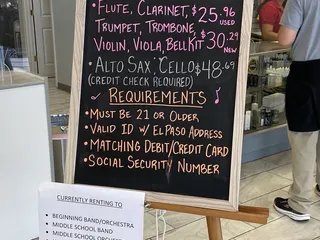 • Flute, Clarinet, $25.96 USED
Trumpet, Trombone,
Violin, Viola, Bell Kit $30.29 NEW
• Alto Sax, Cello $48.69
(CREDIT CHECK REQUIRED)
♪ REQUIREMENTS ♪
• Must be 21 or Older
• Valid ID w/ El Paso Address
• Matching Debit/Credit Card
• Social Security Number
CURRENTLY RENTING TO
• BEGINNING BAND/ORCHESTRA
• MIDDLE SCHOOL BAND
• MIDDLE SCHOOL ORCHESTRA